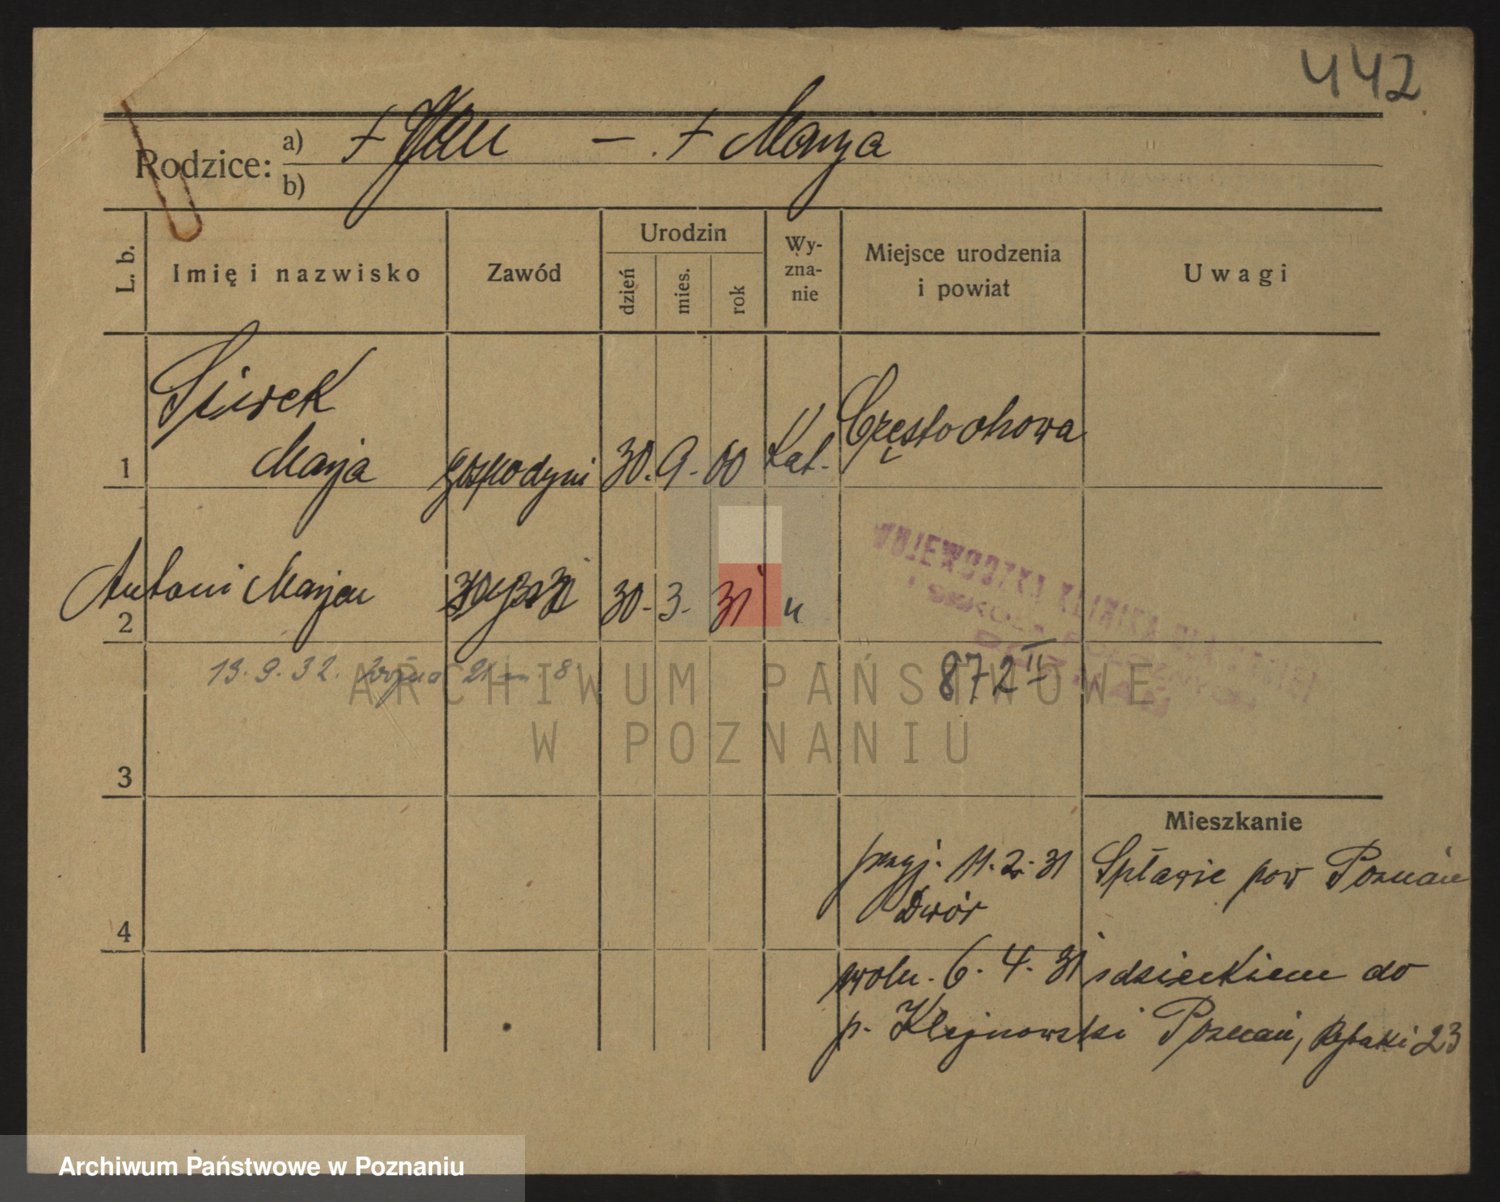 442
Rodzice: a) † Jan — † Marja
b)
L. b. Imię i nazwisko Zawód Urodzin dzień mies. rok Wy-zna-nie Miejsce urodzenia i powiat Uwagi
Siwek
1 Marja gospodyni 30. 9. 00 Kat. Częstochowa
2 Antoni Marjan 30. 3. 31 "
WOJEWÓDZKA KLINIKA DLA KOBIET
13. 9. 32.
872 II
ARCHIWUM PAŃSTWOWE
W POZNANIU
3
Mieszkanie
przyj. 11. 2. 31 Spławie pow Poznań
Dwór
4
woln. 6. 4. 31 z dzieckiem do
p. Klejnowski Poznań, Rybaki 23
Archiwum Państwowe w Poznaniu